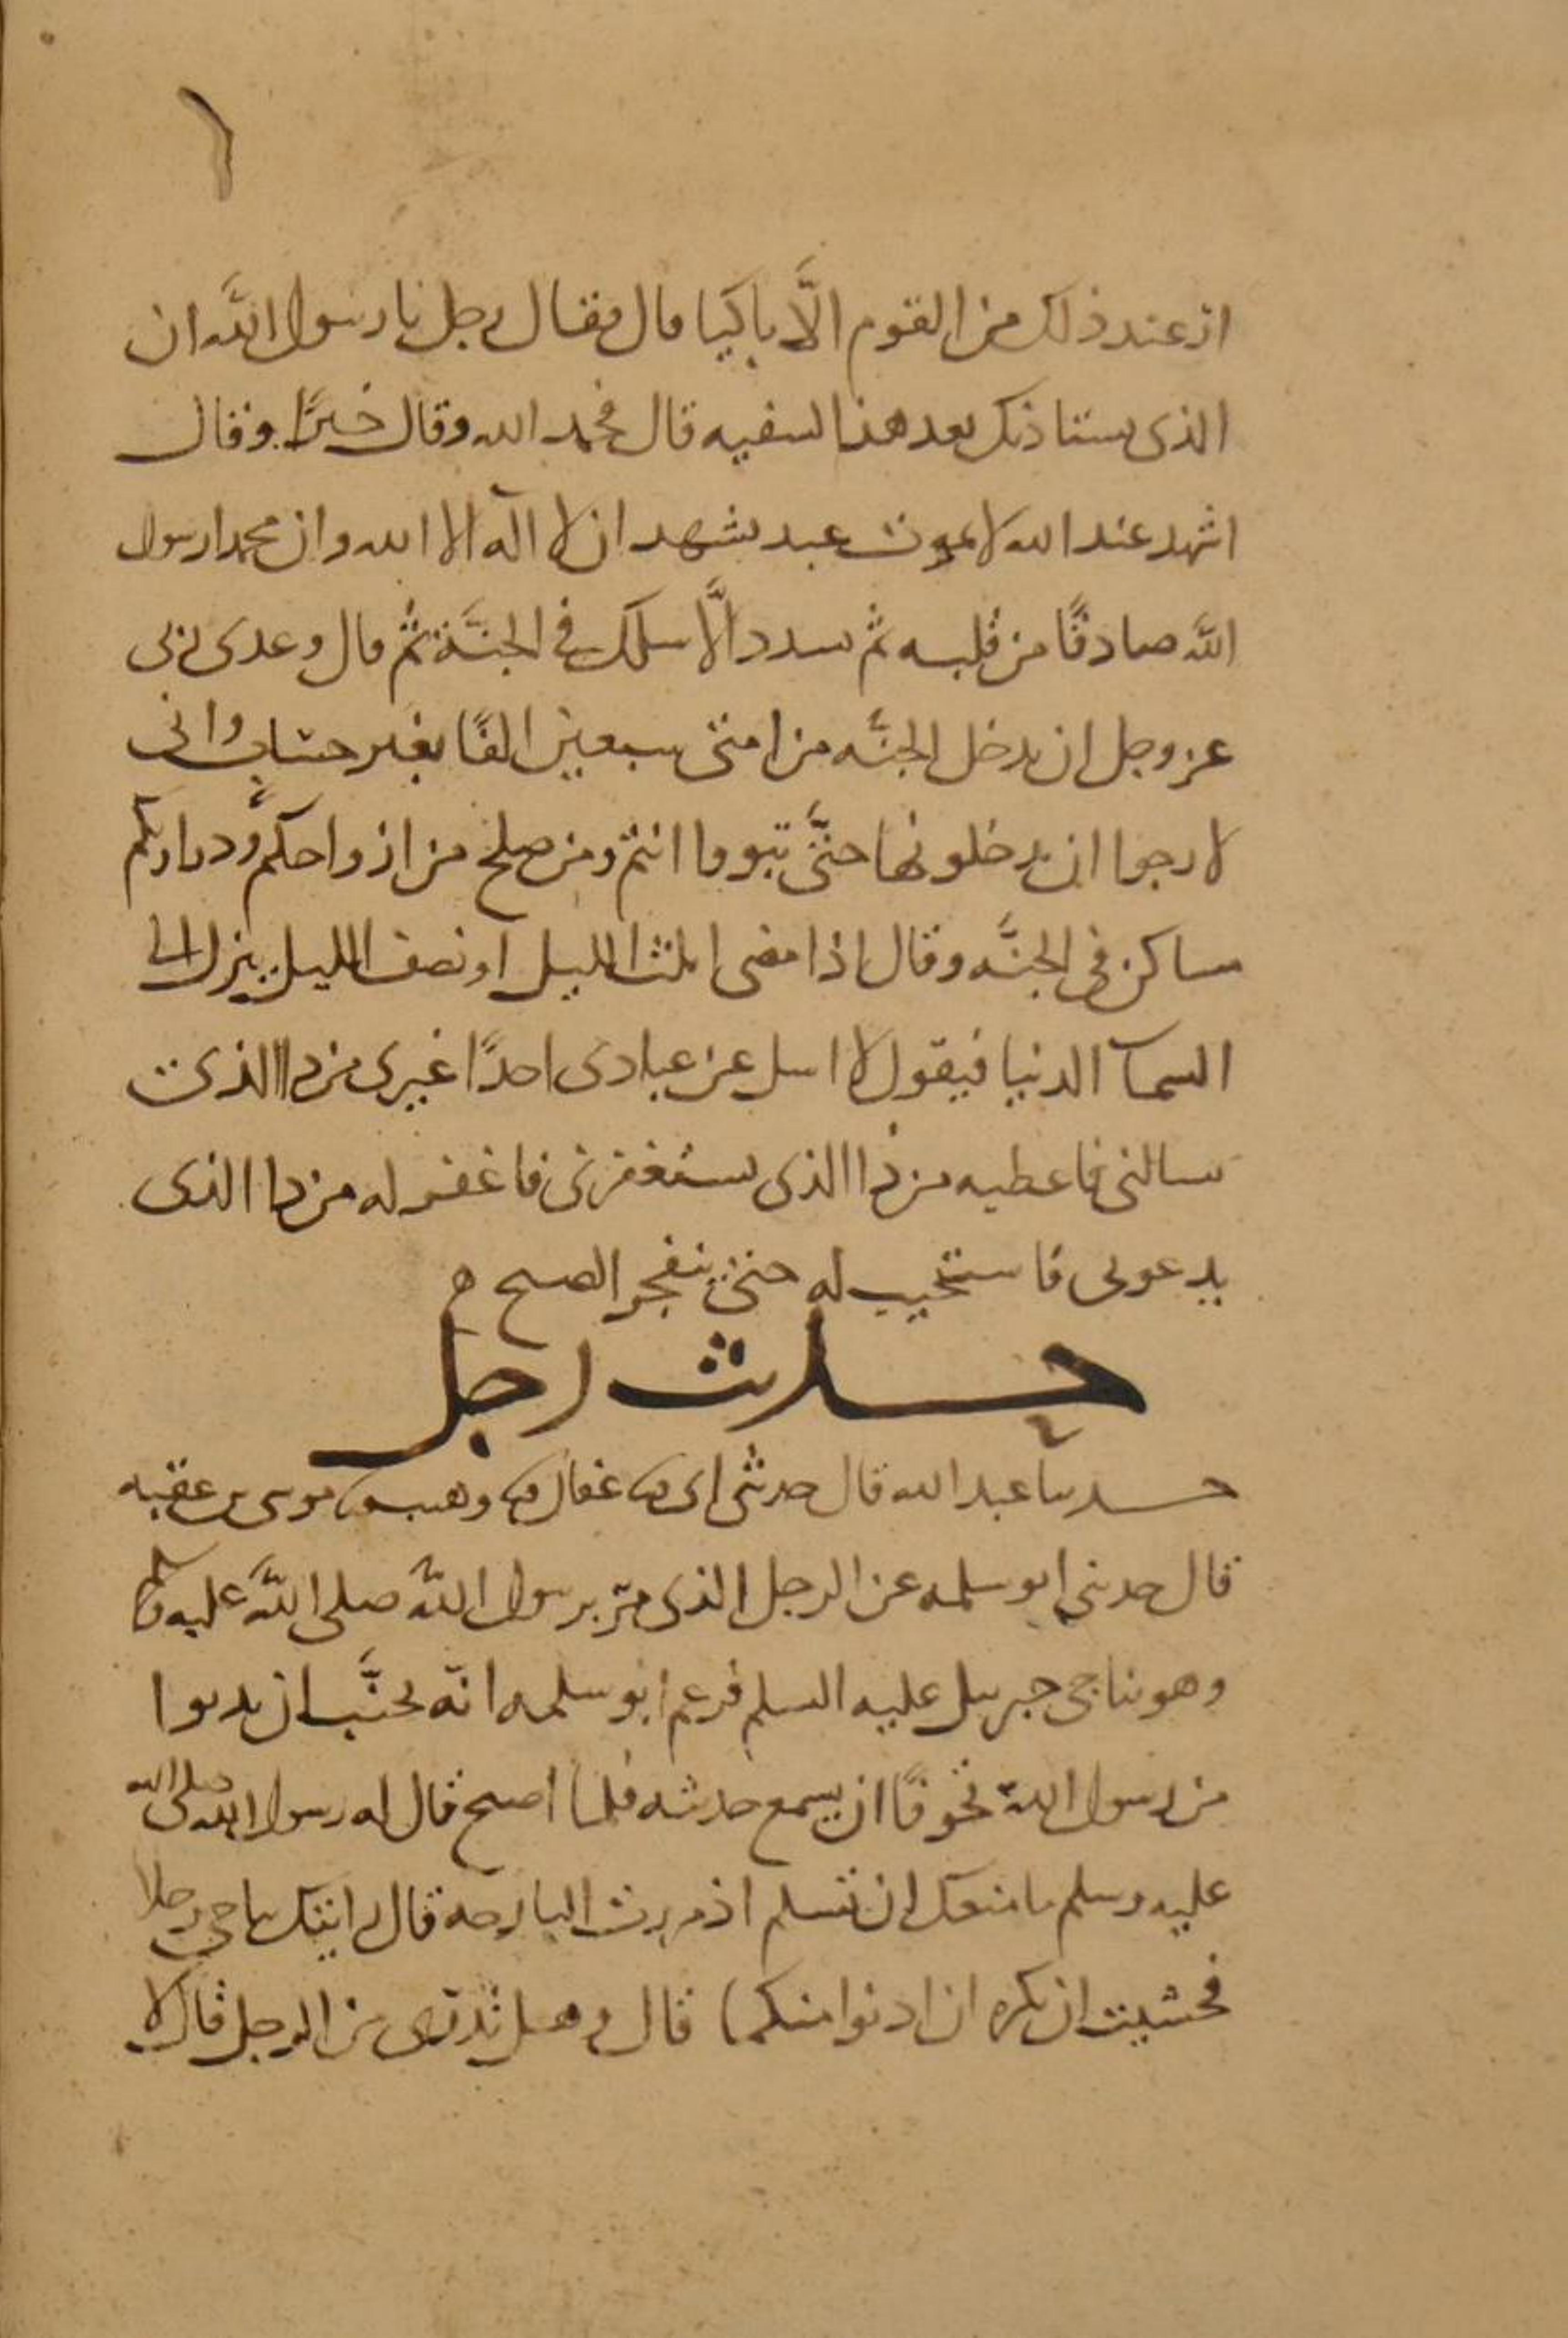 ٦
ار عند ذلك من القوم الَّا باكيا قال فقال رجل يا رسول اللَّه ان
الذي يستاذنك بعد هذا لسفيه قال فحمد الله وقال خيرًا وقال
اشهد عند الله لا يموت عبد يشهد ان لا اله الا الله وان محمدا رسول
اللَّه صادقًا من قلبه ثم سدد الَّا سلك في الجنَّة ثم قال وعدى ربى
عز وجل ان يدخل الجنَّه من امتى سبعين الفًا بغير حساب وانى
لارجوا ان يدخلونها حتَّى تبووا انتم ومن صلح من ازواجكم وذرياتكم
مساكن في الجنَّه وقال اذا مضى ثلث الليل او نصف الليل ينزل الى
السمآ الدنيا فيقول لا اسل عن عبادى احدًا غيرى من ذا الذى
سالنى فاعطيه من ذا الذى يستغفرنى فاغفر له من ذا الذى
يدعونى فاستجيب له حتى ينفجر الصبح ه
حديث رجل
حدثنا عبد الله قال حدثنى ابى ثنا عفان ثنا وهيب ثنا موسى بن عقبه
قال حدثنى ابو سلمه عن الرجل الذى مرّ برسول اللَّه صلى اللَّه عليه وسلم
وهو يناجى جبريل عليه السلم فزعم ابو سلمه انّه تجنَّب ان يدنوا
من رسول اللَّه تخوفًا ان يسمع حديثه فلما اصبح قال له رسول الله صلى الله
عليه وسلم ما منعك ان تسلم اذ مررت البارحه قال رايتك تناجى رجلا
فخشيت ان تكره ان ادنوا منكما قال وهل تدرى من الرجل قال لا